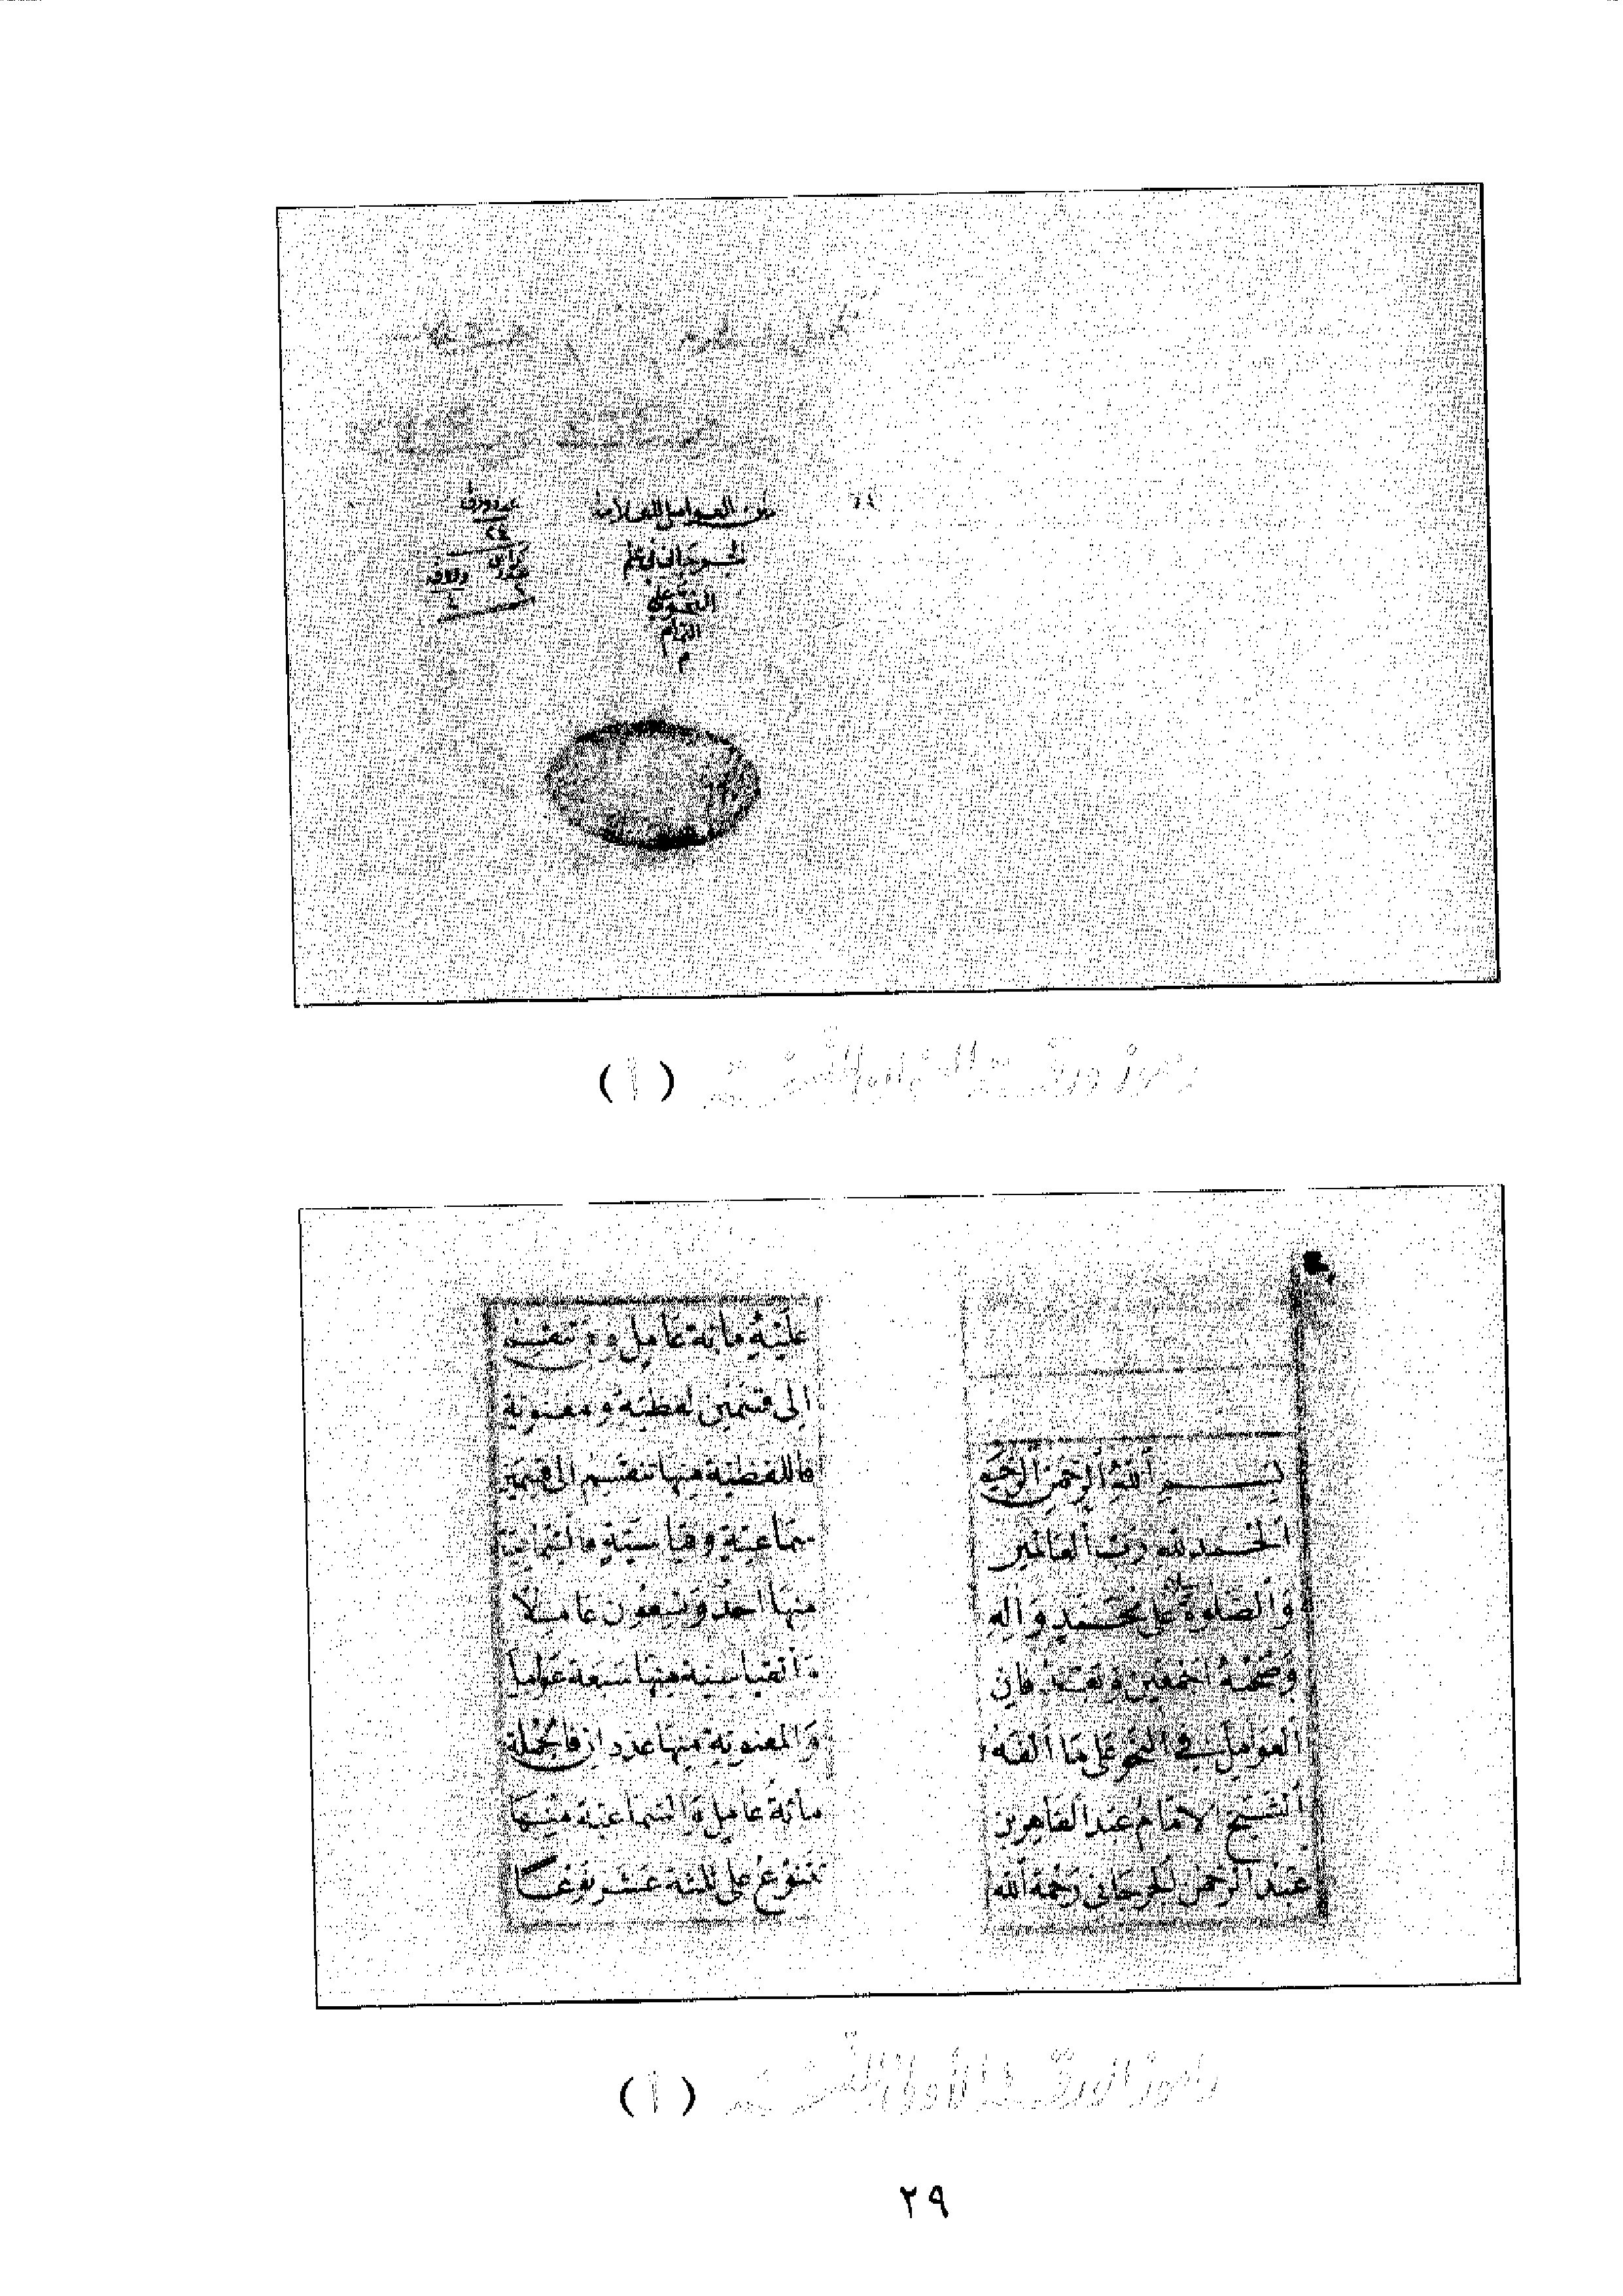 متن العوامل للعلامة
الجرجاني في علم
النحو على
التمام
م
عدد ورق
٢٤
عدد
صورة ورقة العنوان للنسخة ( أ )
بسم الله الرحمن الرحيم
الحمد لله رب العالمين
والصلوة على محمد وآله
وصحبه اجمعين وبعد فان
العوامل في النحو على ما الفه
الشيخ الامام عبد القاهر بن
عبد الرحمن الجرجاني رحمة الله
عليه مائة عامل وهي تنقسم
الى قسمين لفظية ومعنوية
فاللفظية منها تنقسم الى قسمين
سماعية وقياسية فالسماعية
منها احد وتسعون عاملا
والقياسية منها سبعة عوامل
والمعنوية منها عددان فالجملة
مائة عامل والسماعية منها
تتنوع على ثلثة عشر نوعا
صورة الورقة الأولى للنسخة ( أ )
٢٩